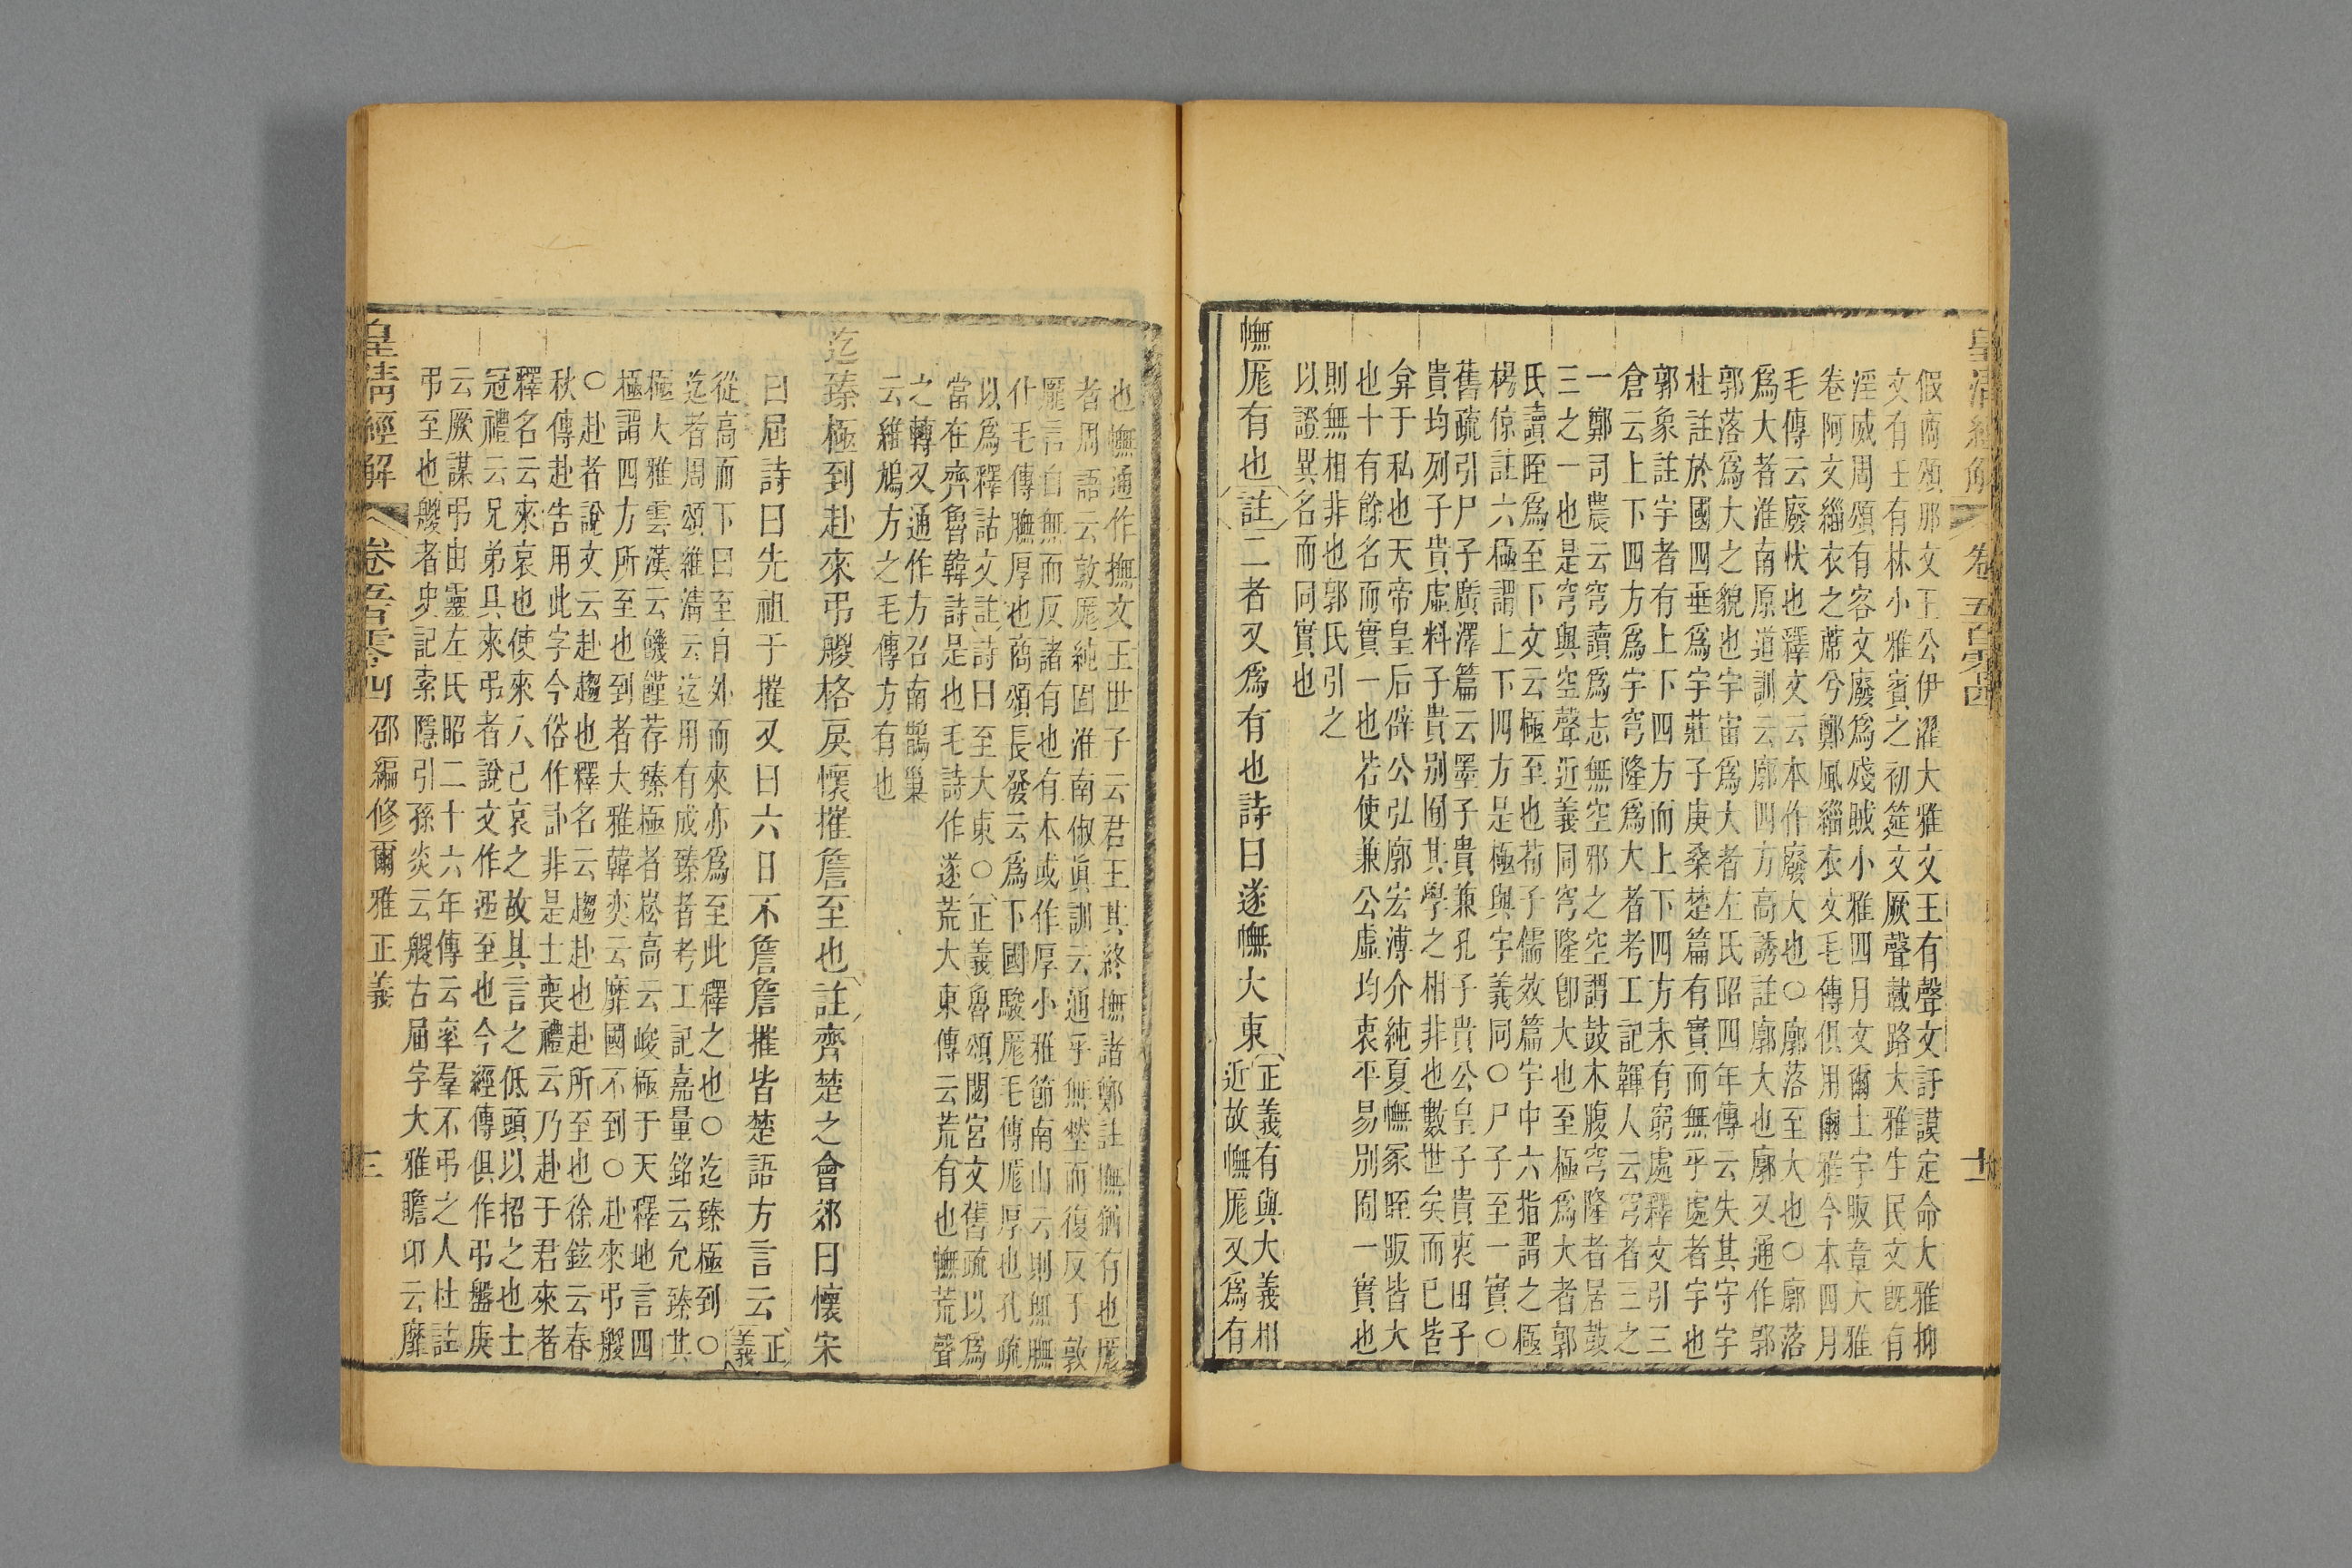 皇清經解 卷五百零四 十二
假商頌那文王公伊濯大雅文王有聲文訏謨定命大雅抑
文有壬有林小雅賓之初筵文厥聲載路大雅生民文旣有
淫威周頌有客文廢爲殘賊小雅四月文爾土宇昄章大雅
卷阿文緇衣之蓆兮鄭風緇衣文毛傳俱用爾雅今本四月
毛傳云廢忕也釋文云本作廢大也○廓落至大也○廓落
爲大者淮南原道訓云廓四方高誘註廓大也廓又通作郭
郭落爲大之貌也宇宙爲大者左氏昭四年傳云失其守宇
杜註於國四垂爲宇莊子庚桑楚篇有實而無乎處者宇也
郭象註宇者有上下四方而上下四方未有窮處釋文引三
倉云上下四方爲宇穹隆爲大者考工記韗人云穹者三之
一鄭司農云穹讀爲志無空邪之空謂鼓木腹穹隆者居鼓
三之一也是穹與空聲近義同穹隆卽大也至極爲大者郭
氏讀晊爲至下文云極至也荀子儒效篇宇中六指謂之極
楊倞註六極謂上下四方是極與宇義同○尸子至一實○
舊疏引尸子廣澤篇云墨子貴兼孔子貴公皇子貴衷田子
貴均列子貴虛料子貴別囿其學之相非也數世矣而已皆
弇于私也天帝皇后辟公弘廓宏溥介純夏幠冢晊昄皆大
也十有餘名而實一也若使兼公虛均衷平易別囿一實也
則無相非也郭氏引之
以證異名而同實也
幠厖有也註二者又爲有也詩曰遂幠大東正義有與大義相
近故幠厖又爲有
也幠通作撫文王世子云君王其終撫諸鄭註撫猶有也厖
者周語云敦厖純固淮南俶眞訓云通乎無壄而復反于敦
厖言自無而反諸有也有本或作厚小雅節南山云則無膴
仕毛傳膴厚也商頌長發云爲下國駿厖毛傳厖厚也孔疏
以爲釋詁文註詩曰至大東○正義魯頌閟宮文舊疏以爲
當在齊魯韓詩是也毛詩作遂荒大東傳云荒有也幠荒聲
之轉又通作方召南鵲巢
云維鳩方之毛傳方有也
迄臻極到赴來弔艐格戾懷摧詹至也註齊楚之會郊曰懷宋
曰屆詩曰先祖于摧又曰六日不詹詹摧皆楚語方言云正義
從高而下曰至自外而來亦爲至此釋之也○迄臻極到○
迄者周頌維淸云迄用有成臻者考工記嘉量銘云允臻其
極大雅雲漢云饑饉荐臻極者崧高云峻極于天釋地言四
極謂四方所至也到者大雅韓奕云靡國不到○赴來弔艐
○赴者說文云赴趨也釋名云趨赴也赴所至也徐鉉云春
秋傳赴告用此字今俗作訃非是士喪禮云乃赴于君來者
釋名云來哀也使來入己哀之故其言之低頭以招之也士
冠禮云兄弟具來弔者說文作𨒾至也今經傳俱作弔盤庚
云厥謀弔由靈左氏昭二十六年傳云率羣不弔之人杜註
弔至也艐者史記索隱引孫炎云艐古屆字大雅瞻卬云靡
皇清經解 卷五百零四 邵編修爾雅正義 三